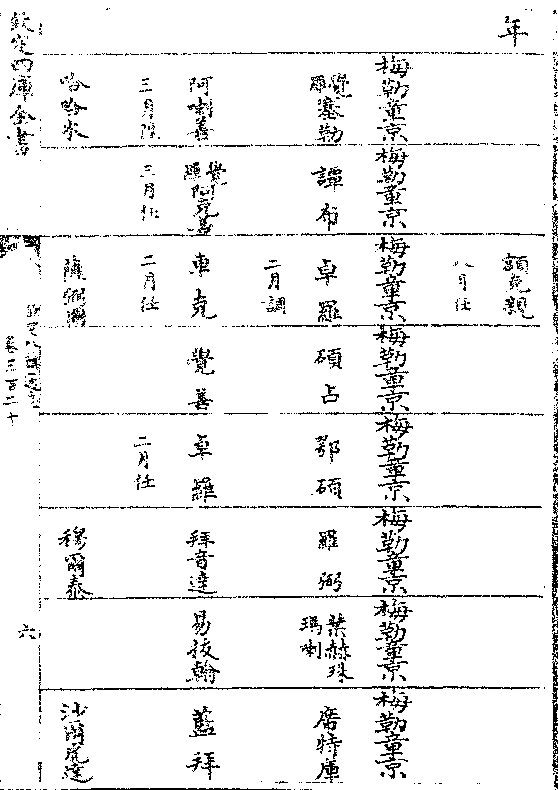 年
額克親
八月任
梅勒章京
梅勒章京
梅勒章京
梅勒章京
梅勒章京
梅勒章京
梅勒章京
梅勒章京
覺羅塞勒
譚布
卓羅
碩占
鄂碩
羅弼
葉赫珠瑪喇
席特庫
二月調
阿喇善
覺羅阿克善
車克
覺善
卓羅
拜音達
易拔翰
藍拜
三月陞
三月任
二月任
二月任
哈哈木
穆爾泰
沙爾虎達
欽定四庫全書
欽定八旗通志
卷三百二十
六